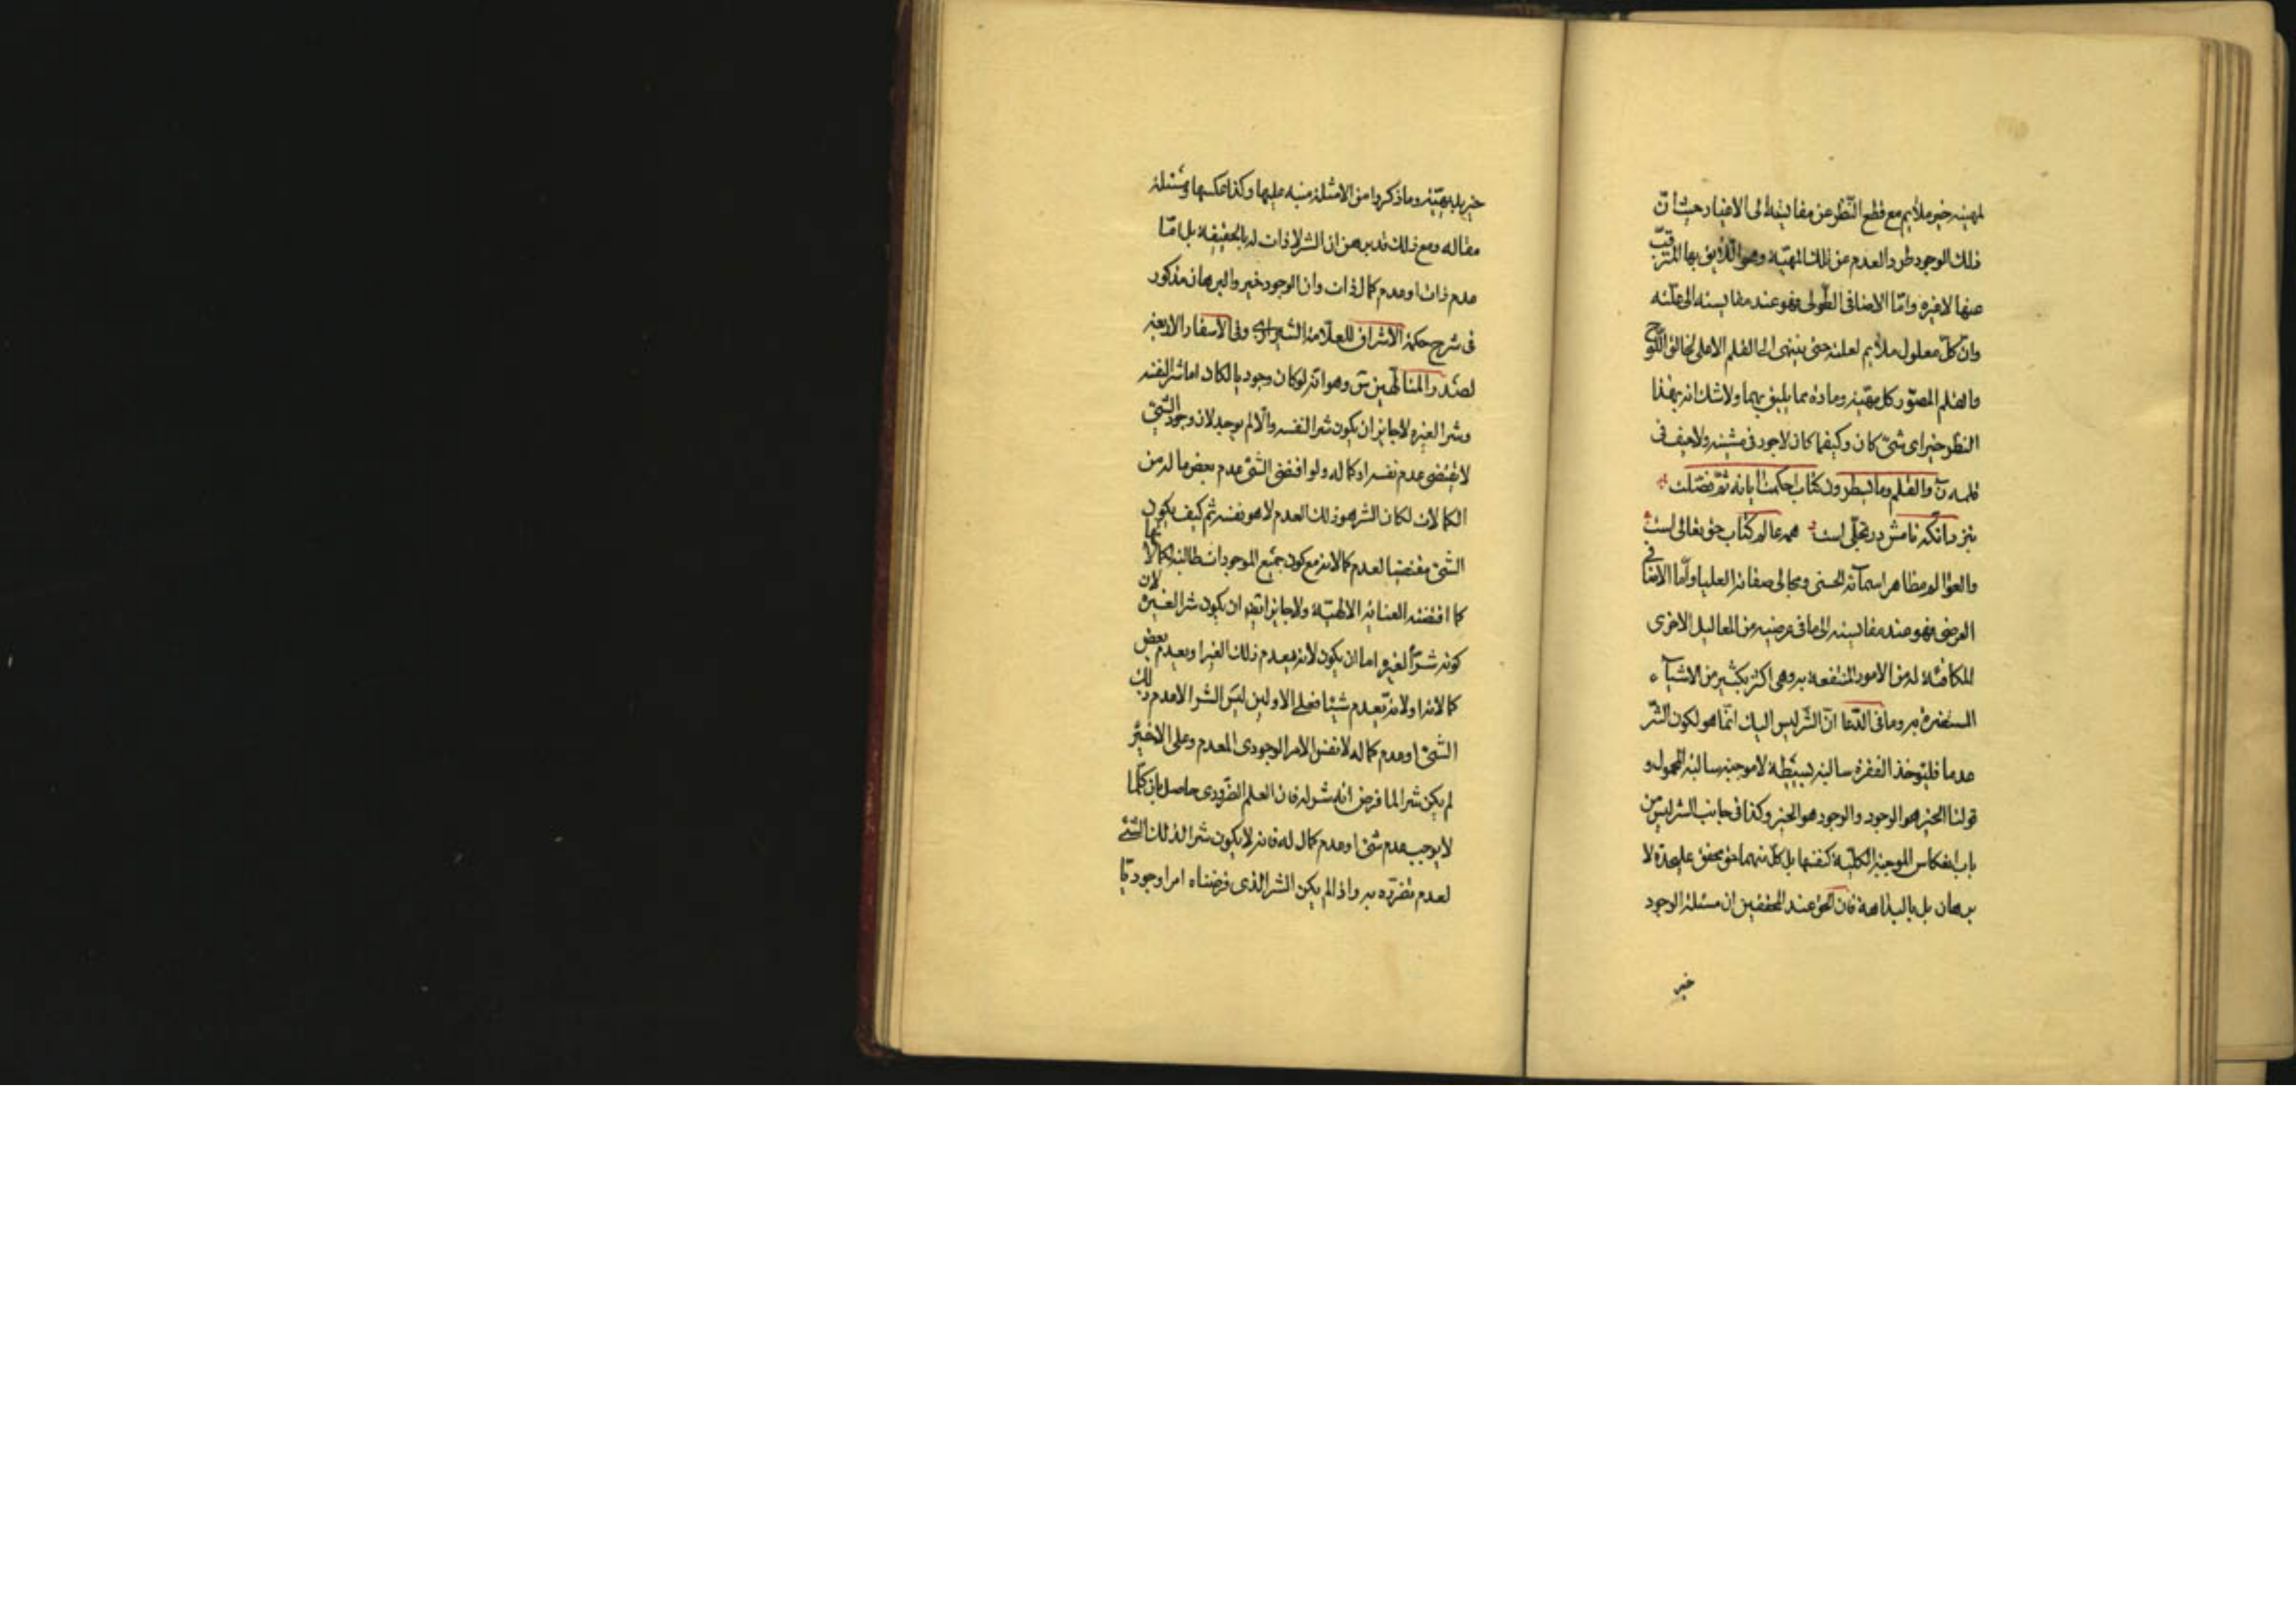 لمهيته خير ملايم مع قطع النظر عن مقايسته الى الاغيار حيث ان
ذلك الوجود طرد العدم عن تلك المهية وهو اللايق بها المترقب
عنها لا غيره واما الاضافى الطولى فهو عند مقايسته الى علته
وان كل معلول ملايم لعلته حتى ينتهى الى القلم الاعلى لخالق اللوح
والقلم المصور كل مهية ومادة بما يليق بهما ولا شك انه بهذا
النظر خير اى شئ كان وكيفما كان لا جور فى مشيته ولا حيف فى
قلمه ن والقلم وما يسطرون كتاب احكمت اياته ثم فصلت
بنزد آنكه جانش در تجلى است همه عالم كتاب حق تعالى است
والعوالم مظاهر اسمائه الحسنى ومجالى صفاته العليا واما الاضافى
العرضى فهو عند مقايسته الى ما فى عرضيه من المعاليل الاخرى
المكافئة له من الامور المنتفعة به وهى اكثر بكثير من الاشياء
المستضرة به وما فى الدعا ان الشر ليس اليك انما هو لكون الشر
عدما فليؤخذ الفقرة سالبة بسيطة لا موجبة سالبة المحمول و
قولنا الخير هو الوجود والوجود هو الخير وكذا فى جانب الشر ليس من
باب انعكاس الموجبة الكلية كنفسها بل كل منهما حق محقق عليحدة لا
ببرهان بل بالبداهة فان الحق عند المحققين ان مسئلة الوجود
خير
خير بديهية وما ذكروا من الامثلة منبه عليها وكذا عكسها ومسئلة
مقاله ومع ذلك قد برهن ان الشر لا ذات له بالحقيقة بل اما
عدم ذات او عدم كمال ذات وان الوجود خير والبرهان مذكور
فى شرح حكمة الاشراق للعلامة الشيرازى وفى الاسفار الاربعة
لصدر المتالهين س وهو انه لو كان وجوديا لكان اما شرا لنفسه
وشرا لغيره لا جايز ان يكون شرا لنفسه والا لم يوجد لان وجود الشئ
لا يقتضى عدم نفسه او كماله ولو اقتضى الشئ عدم بعض ما له من
الكمالات لكان الشر هو ذلك العدم لا هو نفسه ثم كيف يكون
الشئ مقتضيا لعدم كمالاته مع كون جميع الموجودات طالبة لكمالاتها
كما اقتضته العناية الالهية ولا جايز ايضا ان يكون شرا لغيره لان
كونه شرا لغيره اما ان يكون لانه يعدم ذلك الغير او يعدم بعض
كمالاته او لانه لا يعدم شيئا فعلى الاولين ليس الشر الا عدم ذلك
الشئ او عدم كماله لا نفس الامر الوجودى المعدم وعلى الاخير
لم يكن شرا لما فرض انه شر له فان العلم الضرورى حاصل بان كلما
لا يوجب عدم شئ او عدم كمال له فانه لا يكون شرا لذلك الشئ
لعدم تضرره به واذا لم يكن الشر الذى فرضناه امرا وجوديا